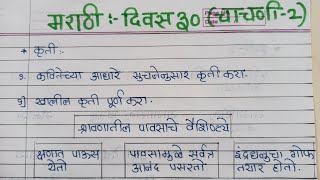 मराठी :- दिवस ३० (चाचणी-2)
* कृती :-
१. कवितेच्या आधारे सुचनेनुसार कृती करा.
१) खालील कृती पूर्ण करा.
श्रावणातील पावसाचे वैशिष्ट्ये
क्षणात पाऊस येतो
पावसामुळे सर्वत्र आनंद पसरतो
इंद्रधनुचा गोफ तयार होतो.